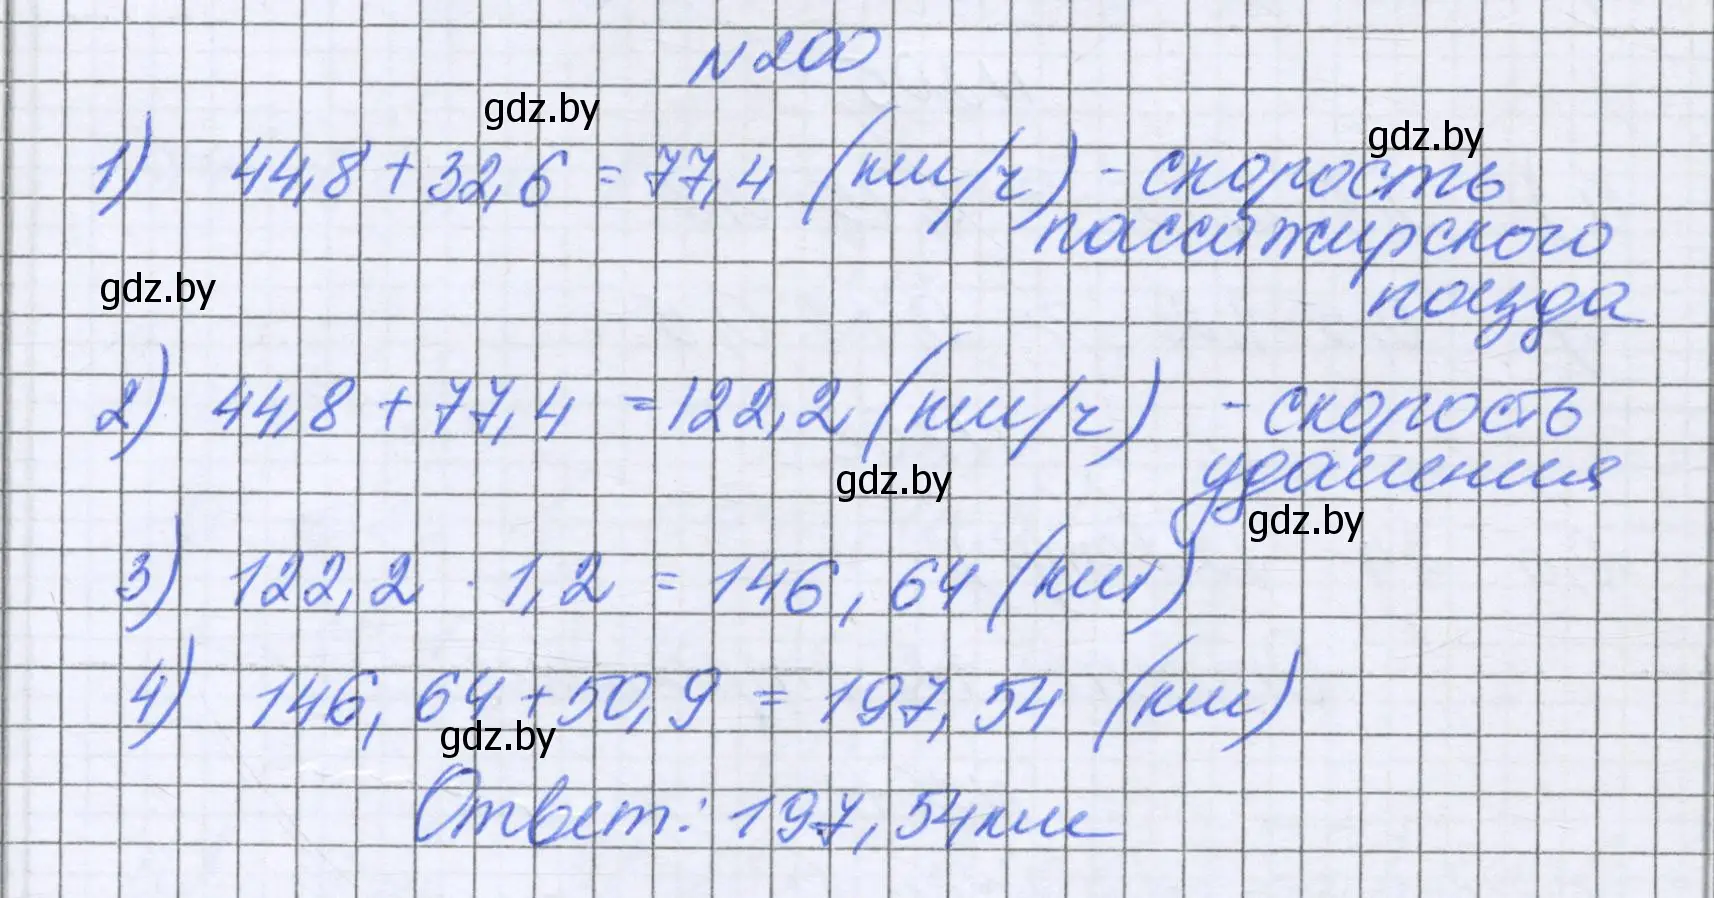 N 200
gdz.by
gdz.by
1) 44,8 + 32,6 = 77,4 (км/ч) - скорость
пассажирского
gdz.by
поезда
2) 44,8 + 77,4 = 122,2 (км/ч) - скорость
удаления
gdz.by
gdz.by
3) 122,2 · 1,2 = 146,64 (км)
4) 146,64 + 50,9 = 197,54 (км)
gdz.by
Ответ: 197,54 км